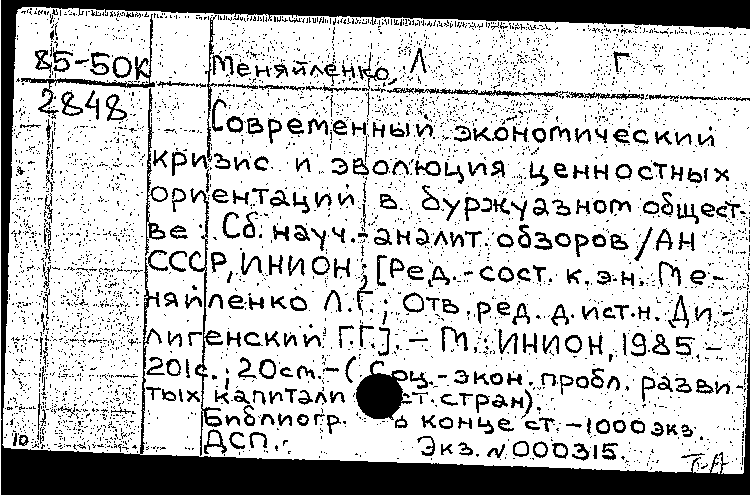 85-50К Меняйленко, Л Г
2848
Современный экономический
кризис и эволюция ценностных
ориентаций в буржуазном общест-
ве : Сб. науч.-аналит. обзоров / АН
СССР, ИНИОН ; [Ред.-сост. к.э.н. Ме-
няйленко Л.Г.; Отв. ред. д.ист.н. Ди-
лигенский Г.Г.]. – М. : ИНИОН, 1985. –
201с.; 20см. – ( Соц.-экон. пробл. разви-
тых капитали ст. стран).
Библиогр. в конце ст. – 1000 экз.
ДСП. Экз. N 000315.
10